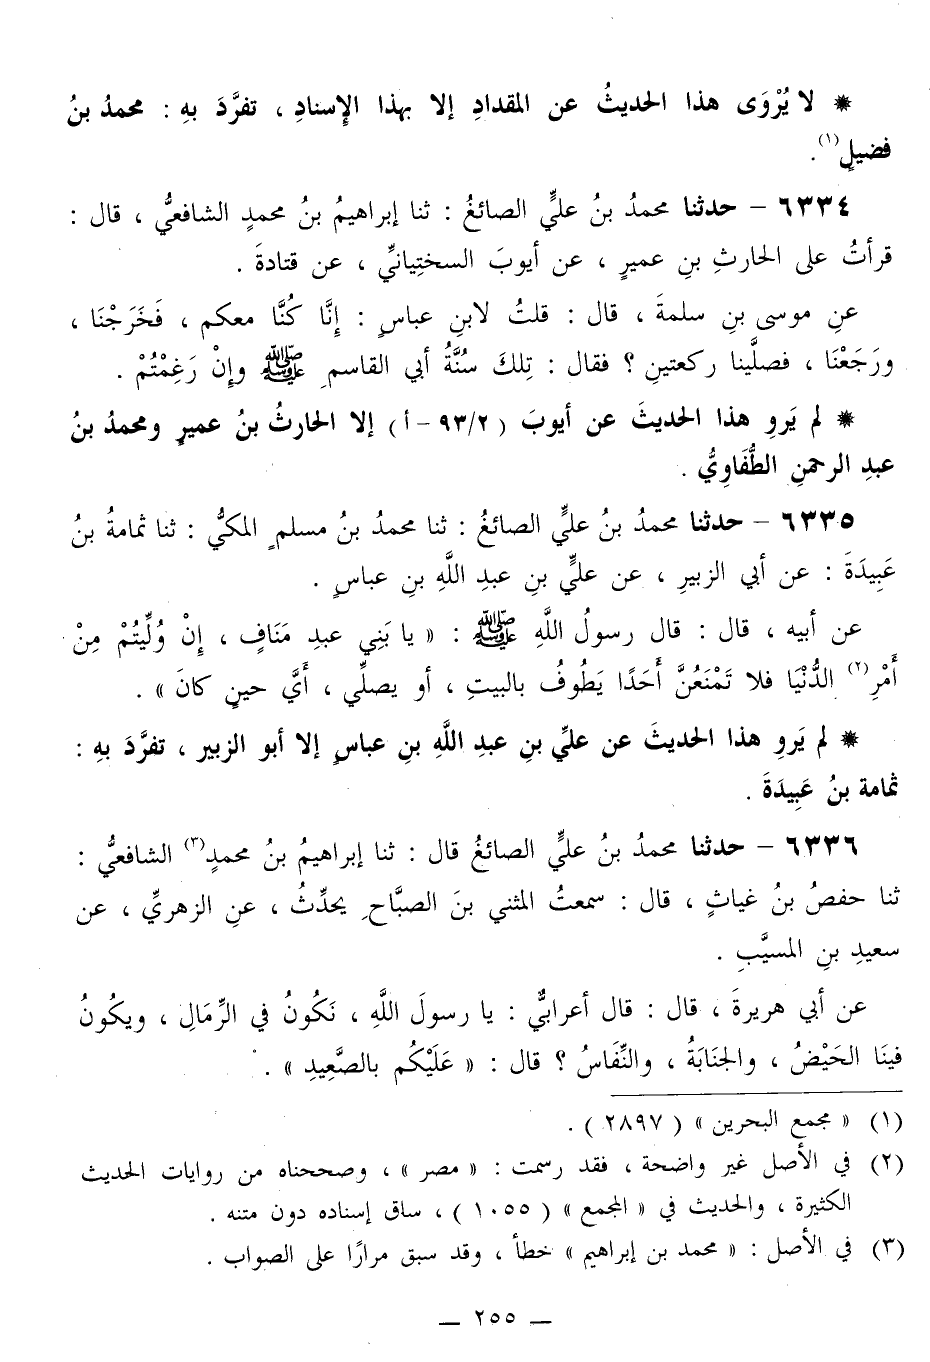 * لا يُرْوَى هذا الحديثُ عن المقدادِ إلا بهذا الإسنادِ ، تفرَّدَ بهِ : محمدُ بنُ
فضيلٍ(١).
٦٣٣٤ – حدثنا محمدُ بنُ عليٍّ الصائغُ : ثنا إبراهيمُ بنُ محمدٍ الشافعيُّ ، قال :
قرأتُ على الحارثِ بنِ عميرٍ ، عن أيوبَ السختِيانيِّ ، عن قتادةَ .
عنِ موسى بنِ سلمةَ ، قال : قلتُ لابنِ عباسٍ : إِنَّا كُنَّا معكم ، فَخَرَجْنَا ،
ورَجَعْنَا ، فصلَّينا ركعتينِ ؟ فقال : تِلكَ سُنَّةُ أبي القاسمِ ﷺ وإِنْ رَغِمْتُمْ .
* لم يَروِ هذا الحديثَ عن أيوبَ ( ٩٣/٢ – أ ) إلا الحارثُ بنُ عميرٍ ومحمدُ بنُ
عبدِ الرحمنِ الطُّفَاوِيُّ .
٦٣٣٥ – حدثنا محمدُ بنُ عليٍّ الصائغُ : ثنا محمدُ بنُ مسلمٍ المكيُّ : ثنا ثمامةُ بنُ
عَبِيدَةَ : عن أبي الزبيرِ ، عن عليِّ بنِ عبدِ اللَّهِ بنِ عباسٍ .
عن أبيه ، قال : قال رسولُ اللَّهِ ﷺ : « يا بَنِي عبدِ مَنَافٍ ، إِنْ وُلِّيتُمْ مِنْ
أَمْرِ(٢) الدُّنْيَا فلا تَمْنَعُنَّ أَحَدًا يَطُوفُ بالبيتِ ، أو يصلِّي ، أَيَّ حينٍ كانَ » .
* لم يَروِ هذا الحديثَ عن عليِّ بنِ عبدِ اللَّهِ بنِ عباسٍ إلا أبو الزبير ، تفرَّدَ بهِ :
ثمامة بنُ عَبِيدَةَ .
٦٣٣٦ – حدثنا محمدُ بنُ عليٍّ الصائغُ قال : ثنا إبراهيمُ بنُ محمدٍ(٣) الشافعيُّ :
ثنا حفصُ بنُ غياثٍ ، قال : سمعتُ المثني بنَ الصبَّاحِ يحدِّثُ ، عنِ الزهريِّ ، عن
سعيدِ بنِ المسيَّبِ .
عن أبي هريرةَ ، قال : قال أعرابيٌّ : يا رسولَ اللَّهِ ، نَكُونُ في الرِّمَالِ ، ويكُونُ
فينَا الحَيْضُ ، والجَنَابَةُ ، والنِّفَاسُ ؟ قال : « عَلَيْكُم بالصَّعِيدِ » .
(١) « مجمع البحرين » ( ٢٨٩٧ ) .
(٢) في الأصل غير واضحة ، فقد رسمت : « مصر » ، وصححناه من روايات الحديث
الكثيرة ، والحديث في « المجمع » ( ١٠٥٥ ) ، ساق إسناده دون متنه .
(٣) في الأصل : « محمد بن إبراهيم » خطأ ، وقد سبق مرارًا على الصواب .
— ٢٥٥ —